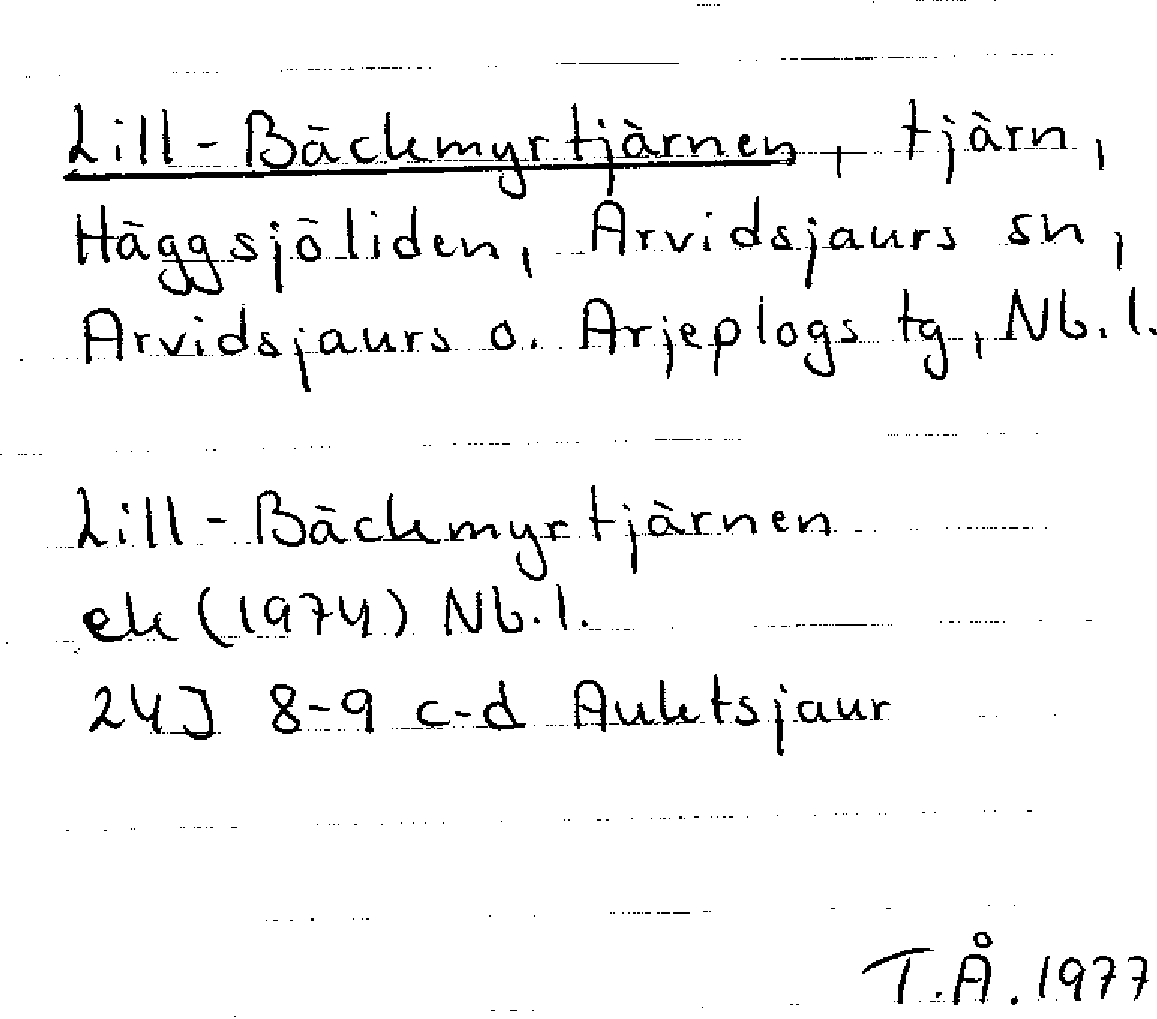 Lill-Bäckmyrtjärnen, tjärn,
Häggsjöliden, Arvidsjaurs sn,
Arvidsjaurs o. Arjeplogs tg, Nb.l.
Lill-Bäckmyrtjärnen
ek (1974) Nb.l.
24J 8-9 c-d Auktsjaur
T.Å. 1977